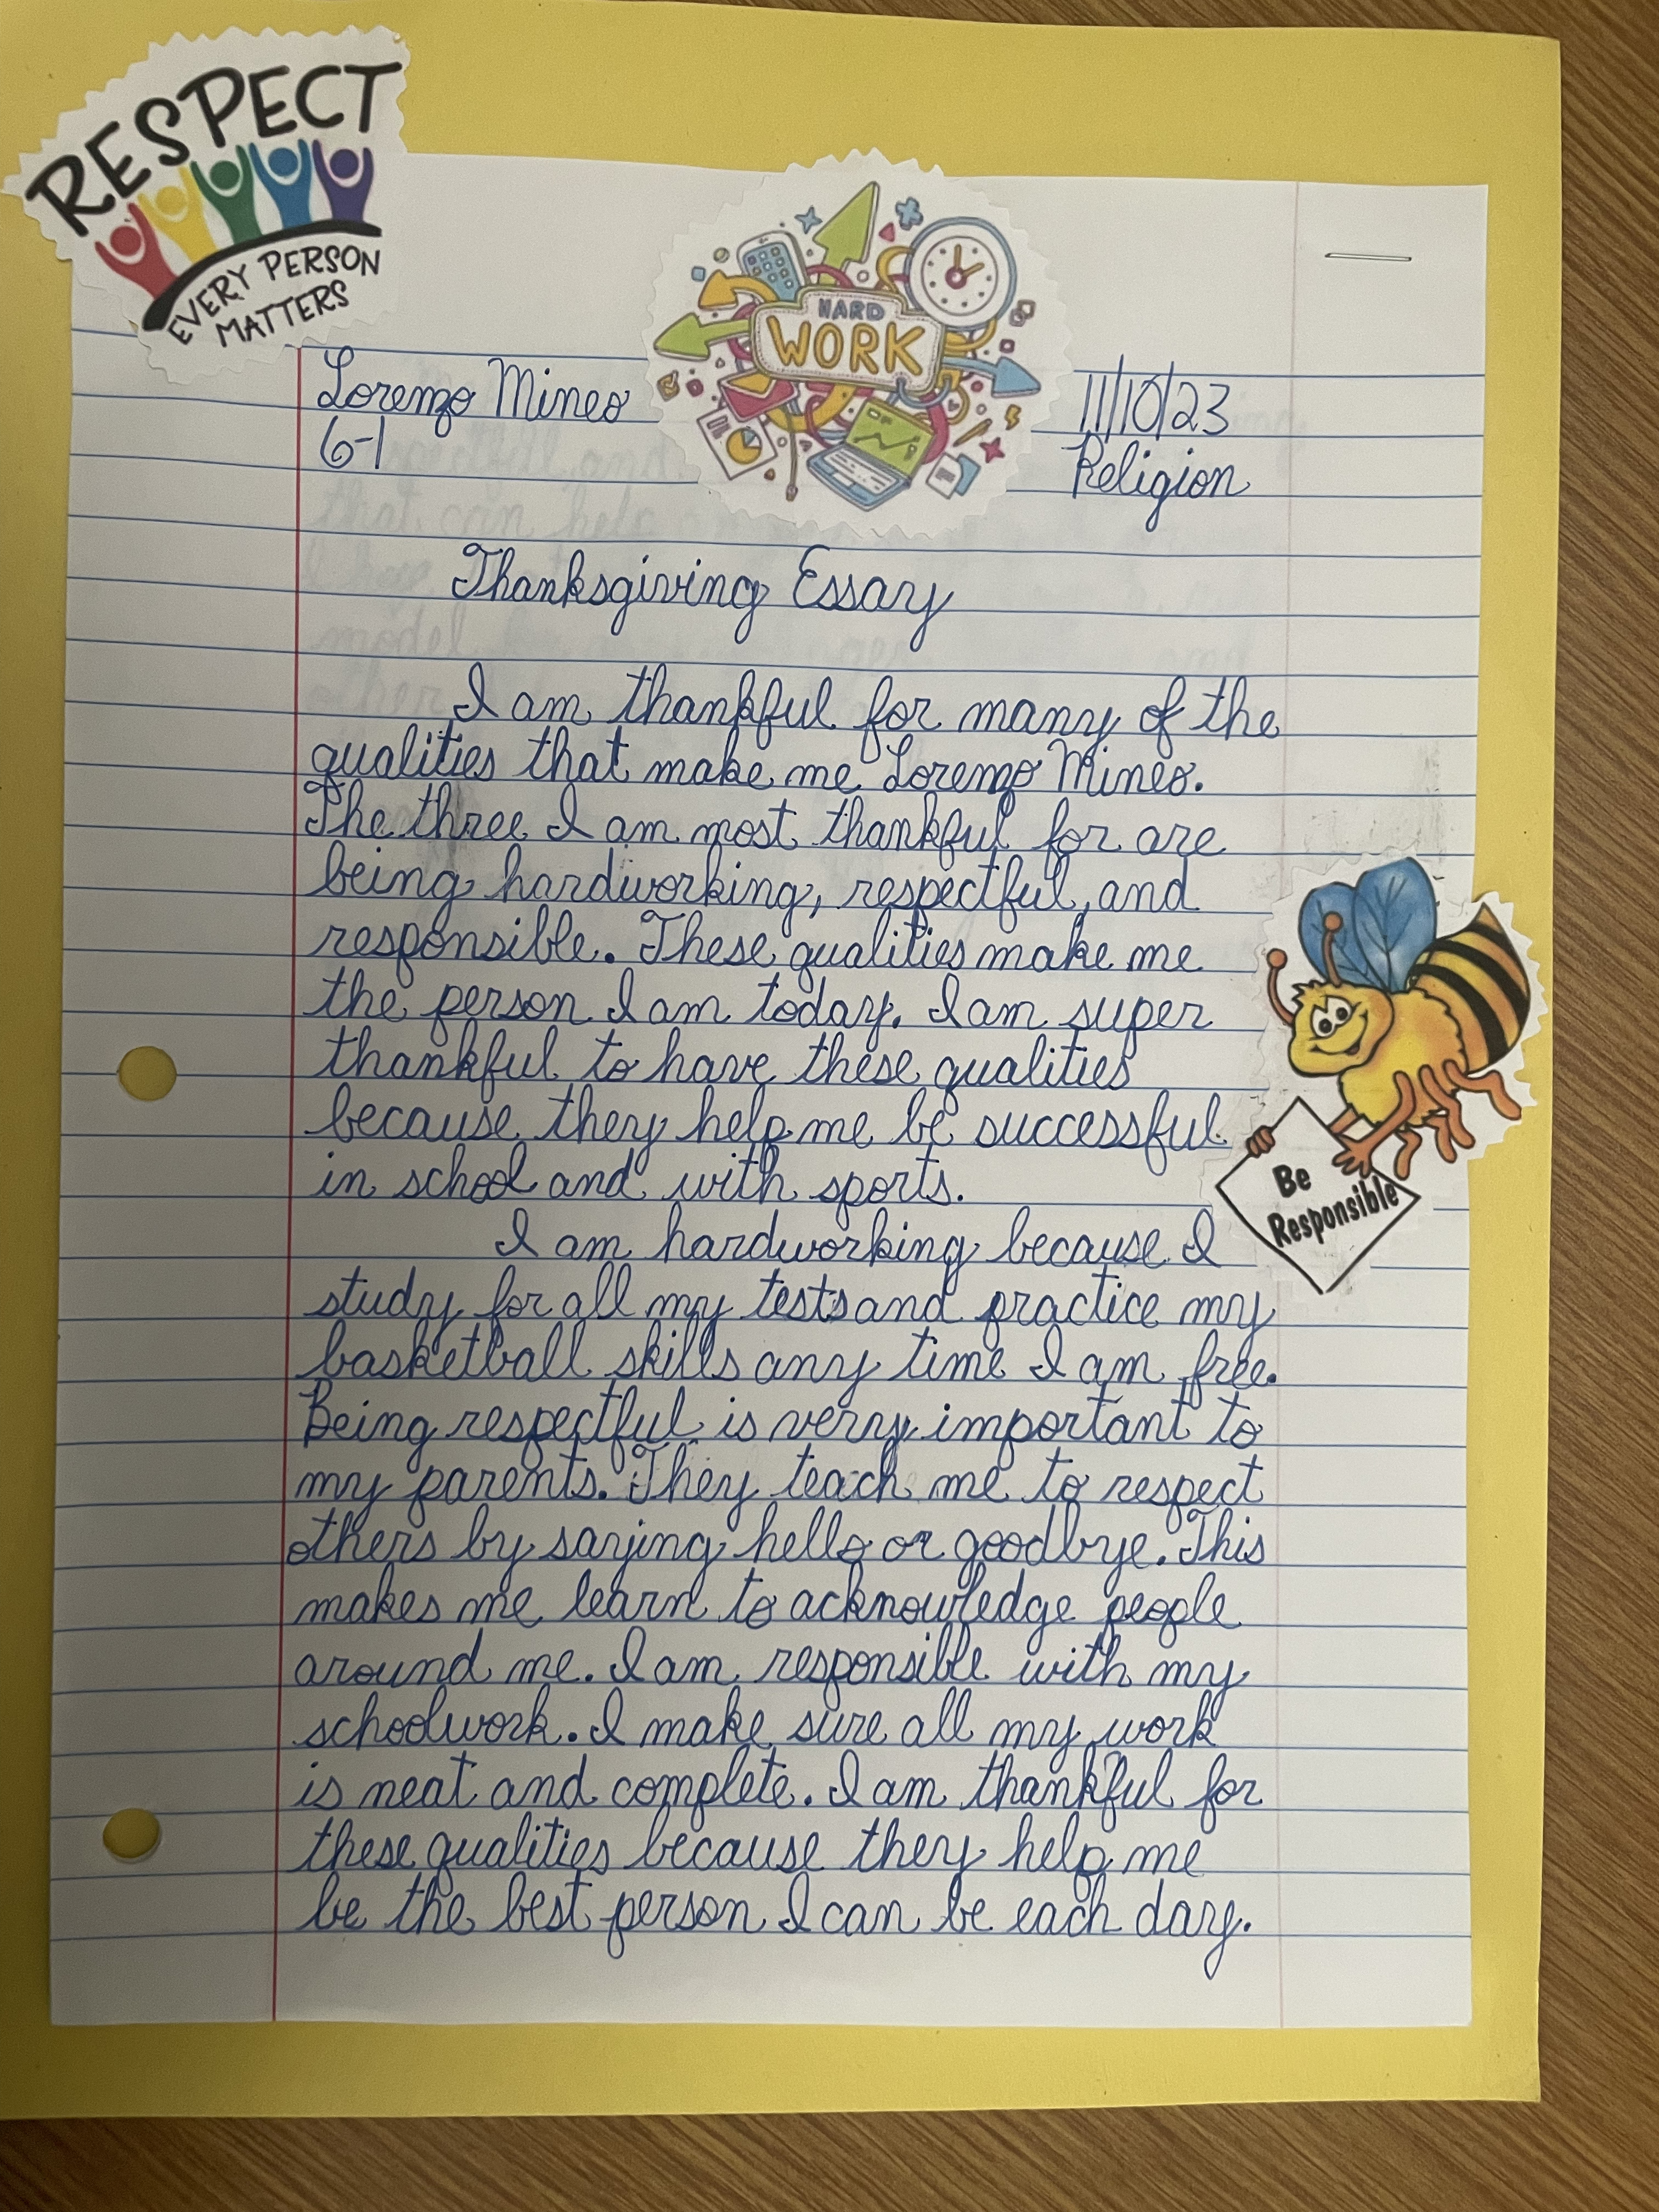 RESPECT
EVERY PERSON
MATTERS
HARD
WORK
Lorenzo Mineo
11/10/23
6-1
Religion
Thanksgiving Essay
I am thankful for many of the
qualities that make me Lorenzo Mineo.
The three I am most thankful for are
being hardworking, respectful, and
responsible. These qualities make me
the person I am today. I am super
thankful to have these qualities
because they help me be successful
in school and with sports.
Be
Responsible
I am hardworking because I
study for all my tests and practice my
basketball skills any time I am free.
Being respectful is very important to
my parents. They teach me to respect
others by saying hello or goodbye. This
makes me learn to acknowledge people
around me. I am responsible with my
schoolwork. I make sure all my work
is neat and complete. I am thankful for
these qualities because they help me
be the best person I can be each day.